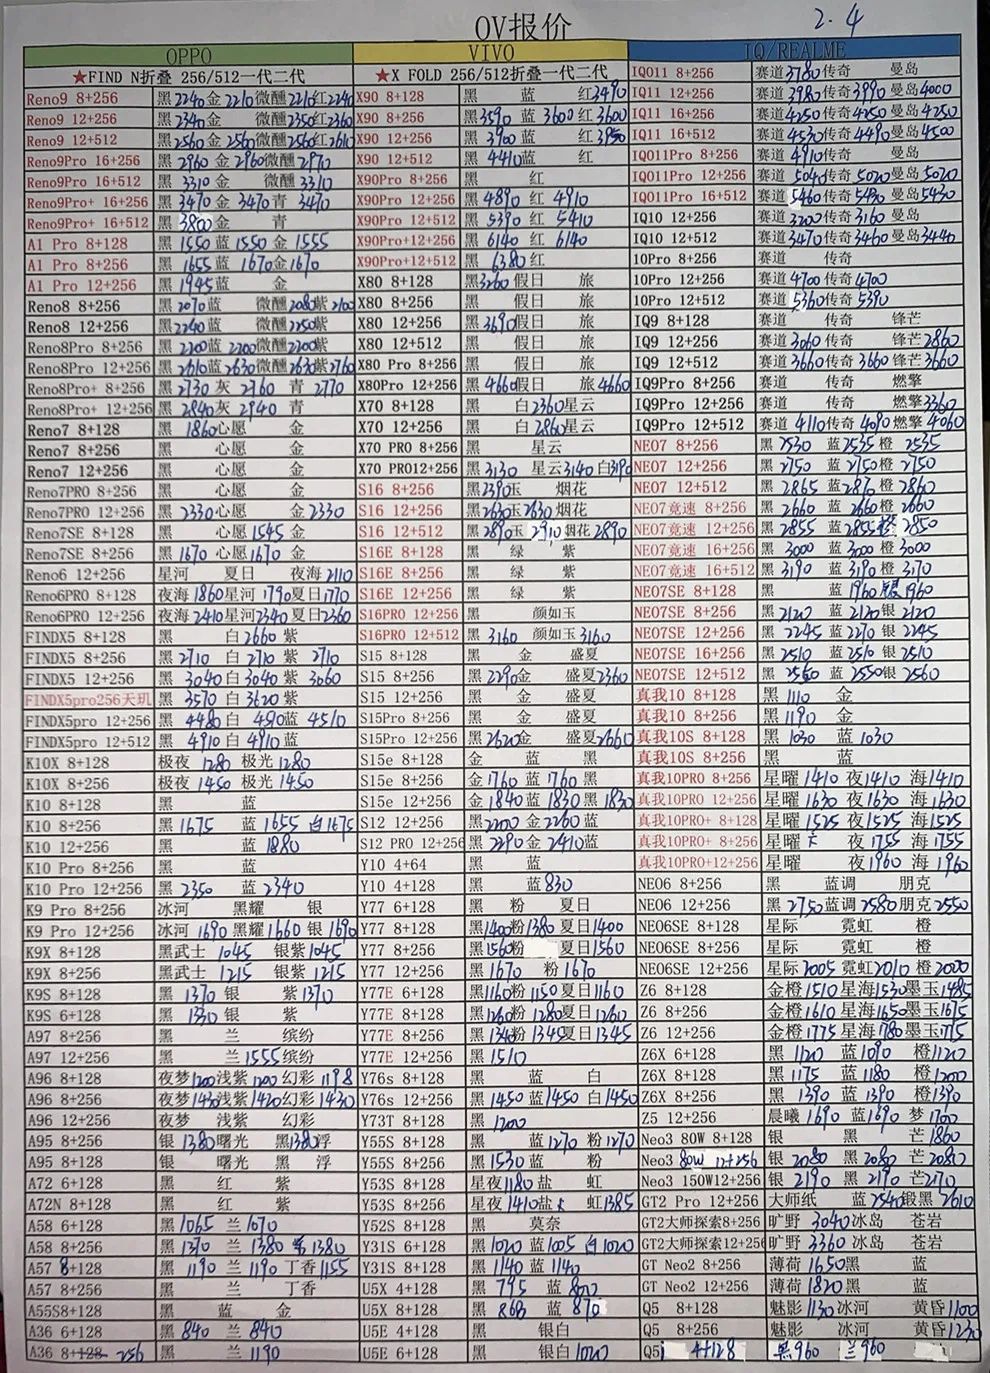 OV报价 2.4
OPPO VIVO IQ/REALME
★FIND N折叠 256/512一代二代 ★X FOLD 256/512折叠一代二代 IQO11 8+256 赛道3780传奇 曼岛
Reno9 8+256 黑2240金2210微醺2210红2240 X90 8+128 黑 蓝 红3490 IQ11 12+256 赛道3980传奇3990曼岛4000
Reno9 12+256 黑2340金 微醺2350红2360 X90 8+256 黑3590 蓝3600红3600 IQ11 16+256 赛道4250传奇4250曼岛4250
Reno9 12+512 黑2560金2560微醺2560红2610 X90 12+256 黑3900 蓝 红3950 IQ11 16+512 赛道4530传奇4490曼岛4500
Reno9Pro 16+256 黑2960金2960微醺2970 X90 12+512 黑4410蓝 红 IQO11Pro 8+256 赛道4910传奇 曼岛
Reno9Pro 16+512 黑3310金 微醺3310 X90Pro 8+256 黑 红 IQO11Pro 12+256 赛道5040传奇5020曼岛5020
Reno9Pro+ 16+256 黑3470金3470青3470 X90Pro 12+256 黑4890红4910 IQO11Pro 16+512 赛道5460传奇5430曼岛5430
Reno9Pro+ 16+512 黑3800金 青 X90Pro 12+512 黑5390红5410 IQ10 12+256 赛道3200传奇3160曼岛
A1 Pro 8+128 黑1550蓝1550金1555 X90Pro+12+256 黑6140红6140 IQ10 12+512 赛道3470传奇3460曼岛3440
A1 Pro 8+256 黑1655蓝1670金1670 X90Pro+12+512 黑6380红 10Pro 8+256 赛道 传奇
A1 Pro 12+256 黑1945蓝 金 X80 8+128 黑3260假日 旅 10Pro 12+256 赛道4700传奇4700
Reno8 8+256 黑2070蓝 微醺2080紫2100 X80 8+256 黑 假日 旅 10Pro 12+512 赛道5360传奇5390
Reno8 12+256 黑2240蓝 微醺2250紫 X80 12+256 黑3690假日 旅 IQ9 8+128 赛道 传奇 锋芒
Reno8Pro 8+256 黑2200蓝2200微醺2200紫 X80 12+512 黑 假日 旅 IQ9 12+256 赛道3060传奇 锋芒2860
Reno8Pro 12+256 黑2610蓝2630微醺2630紫2760 X80 Pro 8+256 黑 假日 旅 IQ9 12+512 赛道3660传奇3660锋芒3660
Reno8Pro+ 8+256 黑2730灰2760青2770 X80Pro 12+256 黑4660假日 旅4660 IQ9Pro 8+256 赛道 传奇 燃擎
Reno8Pro+ 12+256 黑2840灰2940青 X70 8+128 黑 白2360星云 IQ9Pro 12+256 赛道 传奇 燃擎3360
Reno7 8+128 黑1860心愿 金 X70 12+256 黑 白2860星云 IQ9Pro 12+512 赛道4110传奇4090燃擎4060
Reno7 8+256 黑 心愿 金 X70 PRO 8+256 黑 星云 NEO7 8+256 黑2530蓝2535橙2535
Reno7 12+256 黑 心愿 金 X70 PRO12+256 黑3130星云3140白3190 NEO7 12+256 黑2750蓝2750橙2750
Reno7PRO 8+256 黑 心愿 金 S16 8+256 黑2390玉 烟花 NEO7 12+512 黑2865蓝2870橙2860
Reno7PRO 12+256 黑2330心愿 金2330 S16 12+256 黑2630玉2630烟花 NEO7竞速 8+256 黑2660蓝2660橙2660
Reno7SE 8+128 黑 心愿1545金 S16 12+512 黑2890玉2910烟花2890 NEO7竞速 12+256 黑2855蓝2855橙2850
Reno7SE 8+256 黑1670心愿1670金 S16E 8+128 黑 绿 紫 NEO7竞速 16+256 黑3000蓝3000橙3000
Reno6 12+256 星河 夏日 夜海2110 S16E 8+256 黑 绿 紫 NEO7竞速 16+512 黑3190蓝3190橙3170
Reno6PRO 8+128 夜海1860星河1790夏日1770 S16E 12+256 黑 绿 紫 NEO7SE 8+128 黑 蓝1960银1960
Reno6PRO 12+256 夜海2410星河2340夏日2360 S16PRO 12+256 黑 颜如玉 NEO7SE 8+256 黑2120蓝2120银2120
FINDX5 8+128 黑 白2660紫 S16PRO 12+512 黑3160颜如玉3160 NEO7SE 12+256 黑2245蓝2270银2245
FINDX5 8+256 黑2710白2710紫2710 S15 8+128 黑 金 盛夏 NEO7SE 16+256 黑2510蓝2510银2510
FINDX5 12+256 黑3040白3040紫3060 S15 8+256 黑2290金 盛夏2360 NEO7SE 12+512 黑2560蓝2550银2560
FINDX5pro256天玑 黑3570白3620紫 S15 12+256 黑 金 盛夏 真我10 8+128 黑1110金
FINDX5pro 12+256 黑4480白4490蓝4510 S15Pro 8+256 黑 金 盛夏 真我10 8+256 黑1190金
FINDX5pro 12+512 黑4910白4910蓝 S15Pro 12+256 黑2620金 盛夏2660 真我10S 8+128 黑1030蓝1030
K10X 8+128 极夜1280极光1280 S15e 8+128 金 蓝 黑 真我10S 8+256 黑 蓝
K10X 8+256 极夜1450极光1450 S15e 8+256 金1760蓝1760黑 真我10PRO 8+256 星曜1410夜1410海1410
K10 8+128 黑 蓝 S15e 12+256 金1840蓝1830黑1830 真我10PRO 12+256 星曜1630夜1630海1630
K10 8+256 黑1675蓝1655白1675 S12 12+256 黑2200金2260蓝 真我10PRO+ 8+128 星曜1525夜1525海1525
K10 12+256 黑 蓝1880 S12 PRO 12+256 黑2290金2410蓝 真我10PRO+ 8+256 星曜 夜1755海1755
K10 Pro 8+256 黑 蓝 Y10 4+64 黑 蓝 真我10PRO+12+256 星曜 夜1960海1960
K10 Pro 12+256 黑2350蓝2340 Y10 4+128 黑 蓝830 NEO6 8+256 黑 蓝调 朋克
K9 Pro 8+256 冰河 黑耀 银 Y77 6+128 黑 粉 夏日 NEO6 12+256 黑2750蓝调2580朋克2550
K9 Pro 12+256 冰河1690黑耀1660银1690 Y77 8+128 黑1400粉1380夏日1400 NEO6SE 8+128 星际 霓虹 橙
K9X 8+128 黑武士1045银紫1045 Y77 8+256 黑1560粉 夏日1560 NEO6SE 8+256 星际 霓虹 橙
K9X 8+256 黑武士1215银紫1215 Y77 12+256 黑1670粉1670 NEO6SE 12+256 星际2005霓虹2010橙2000
K9S 8+128 黑1370银 紫1370 Y77E 6+128 黑1160粉1150夏日1160 Z6 8+128 金橙1510星海1530墨玉1485
K9S 6+128 黑1330银 紫 Y77E 8+128 黑1260粉1280夏日1260 Z6 8+256 金橙1610星海1650墨玉1675
A97 8+256 黑 兰 缤纷 Y77E 8+256 黑1340粉1345夏日1345 Z6 12+256 金橙1775星海1780墨玉1775
A97 12+256 黑 兰1555缤纷 Y77E 12+256 黑1510 Z6X 6+128 黑1120蓝1090橙1120
A96 8+128 夜梦1200浅紫1200幻彩1198 Y76s 8+128 黑 蓝 白 Z6X 8+128 黑1175蓝1180橙1200
A96 8+256 夜梦1430浅紫1420幻彩1430 Y76s 12+256 黑1450蓝1450白1450 Z6X 8+256 黑1390蓝1390橙1390
A96 12+256 夜梦 浅紫 幻彩 Y73T 8+128 黑1200 Z5 12+256 晨曦1690蓝1690梦1700
A95 8+256 银1380曙光 黑1380浮 Y55S 8+128 黑 蓝1270粉1270 Neo3 80W 8+128 银 黑 芒1860
A95 8+128 银 曙光 黑 浮 Y55S 8+256 黑1530蓝 粉 Neo3 80W 12+256 银2080黑2080芒2080
A72 6+128 黑 红 紫 Y53S 8+128 星夜1180盐 虹 Neo3 150W12+256 银2190黑2190芒2170
A72N 8+128 黑 红 紫 Y53S 8+256 星夜1410盐 虹1385 GT2 Pro 12+256 大师纸 蓝2540锻黑2610
A58 6+128 黑1065兰1070 Y52S 8+128 黑 莫奈 GT2大师探索8+256 旷野3040冰岛 苍岩
A58 8+256 黑1370兰1380紫1380 Y31S 6+128 黑1020蓝1005白1020 GT2大师探索12+256 旷野3360冰岛 苍岩
A57 8+128 黑1190兰1190丁香1155 Y31S 8+128 黑1140蓝1140 GT Neo2 8+256 薄荷1650黑 蓝
A57 8+256 黑 兰 丁香 U5X 4+128 黑795蓝800 GT Neo2 12+256 薄荷1820黑 蓝
A55S8+128 黑 蓝 金 U5X 8+128 黑868蓝870 Q5 8+128 魅影1130冰河 黄昏1100
A36 6+128 黑840兰840 U5E 4+128 黑 银白 Q5 8+256 魅影 冰河 黄昏1230
A36 8+128 256 黑 兰1190 U5E 6+128 黑 银白1020 Q5i 4+128 黑960兰960